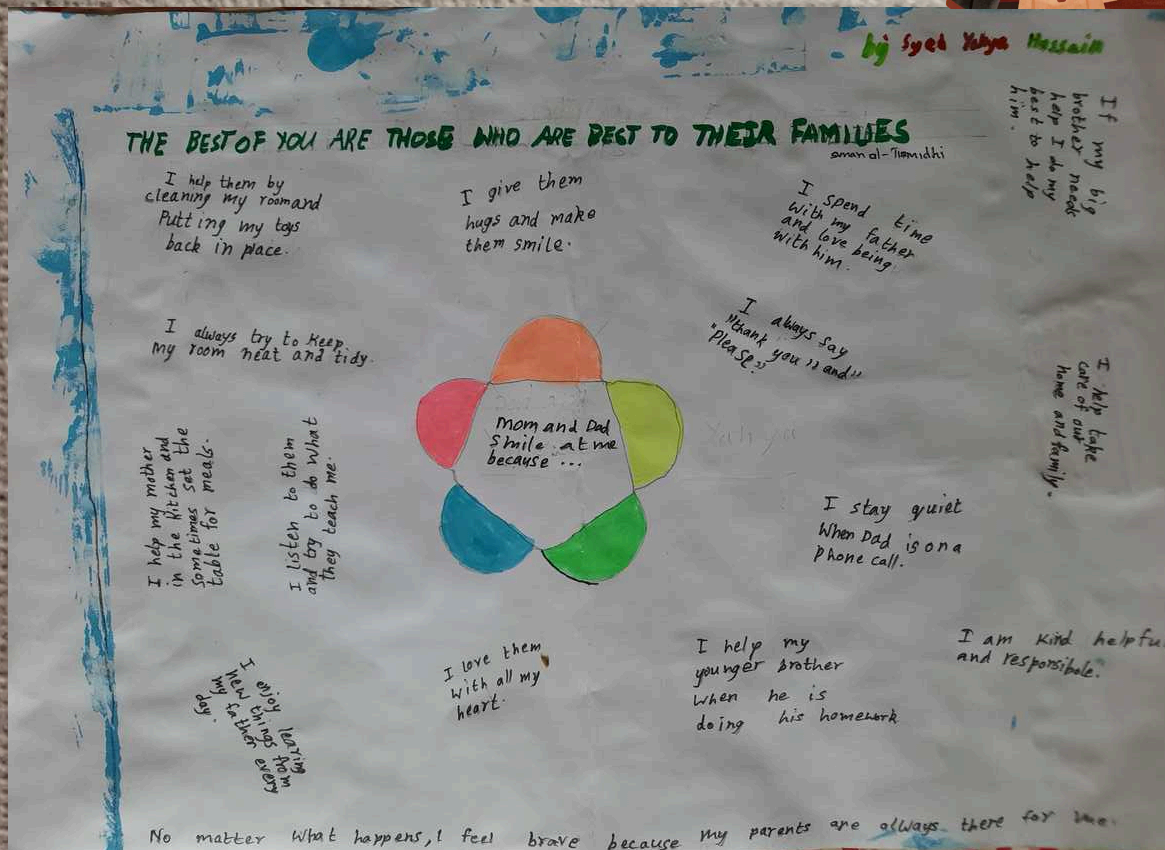 by Syed Yahya Hossain
THE BEST OF YOU ARE THOSE WHO ARE BEST TO THEIR FAMILIES
sman al-Tismidhi
I help them by
cleaning my room and
Putting my toys
back in place.
I give them
hugs and make
them smile.
I spend time
with my father
and love being
with him.
If my big
brother needs
help I do my
best to help
him.
I always try to keep
My room neat and tidy.
I always say
"thank you" and"
"Please"
I help take
care of our
home and family.
Mom and Dad
Smile at me
because ...
Yahya
I help my mother
in the kitchen and
sometimes set the
table for meals.
I listen to them
and try to do what
they teach me.
I stay quiet
When Dad is on a
phone call.
I enjoy learing
new things from
my father every
day.
I love them
with all my
heart.
I help my
younger brother
when he is
doing his homework
I am kind helpful
and responsibole.
No matter what happens, I feel brave because my parents are always there for me.